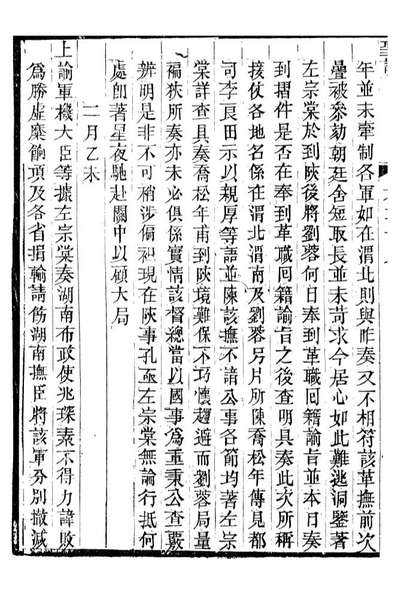 年並未牽制各軍如在渭北則與昨奏又不相符該革撫前次
疊被參劾朝廷舍短取長並未苛求今居心如此難逃洞鑒著
左宗棠於到陝後將劉蓉何日奉到革職回籍諭旨並本日奏
到摺件是否在奉到革職回籍諭旨之後查明具奏此次所稱
接仗各地名係在渭北渭南及劉蓉另片所陳喬松年傳見都
司李良田示以親厚等語並陳該撫不諳公事各節均著左宗
棠詳查具奏喬松年甫到陝境難保不巧懷趨避而劉蓉局量
褊狹所奏亦未必俱係實情該督總當以國事為重秉公查覈
辨明是非不可稍涉偏袒現在陝事孔亟左宗棠無論行抵何
處即著星夜馳赴關中以顧大局
二月乙未
上諭軍機大臣等據左宗棠奏湖南布政使兆琛素不得力諱敗
為勝虛糜餉項及各省捐輸請飭湖南撫臣將該軍分別撤減